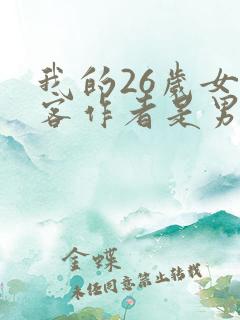 我的26岁女
客作者是男
金蝶
未经同意禁止转载